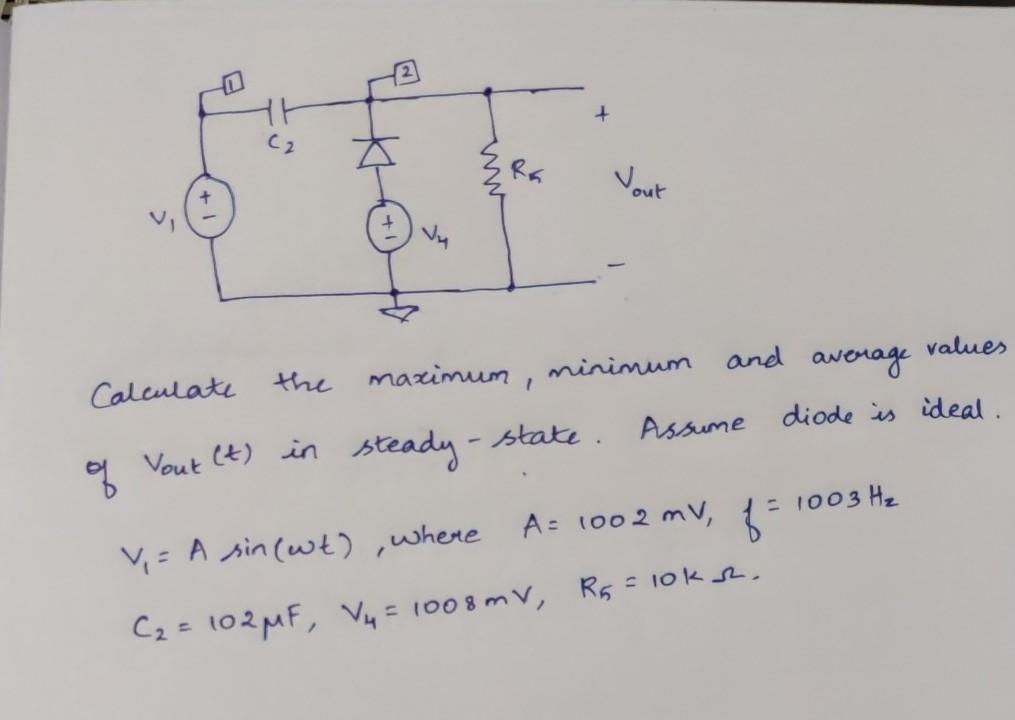 1
2
C2
+
R5
Vout
V1
+
-
+
-
V4
-
Calculate the maximum, minimum and average values
of Vout(t) in steady-state. Assume diode is ideal.
V1 = A sin(ωt), where A = 1002 mV, f = 1003 Hz
C2 = 102 μF, V4 = 1008 mV, R5 = 10k Ω.